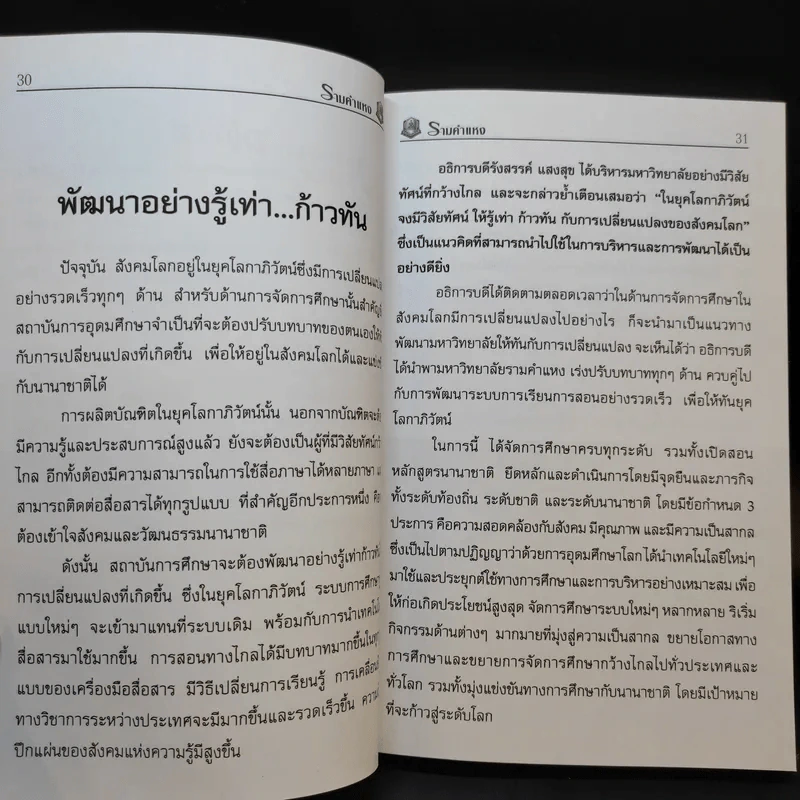 30
รามคำแหง
พัฒนาอย่างรู้เท่า...ก้าวทัน
ปัจจุบัน สังคมโลกอยู่ในยุคโลกาภิวัตน์ซึ่งมีการเปลี่ยนแปลง
อย่างรวดเร็วทุกๆ ด้าน สำหรับด้านการจัดการศึกษานั้นสำคัญยิ่ง
สถาบันการอุดมศึกษาจำเป็นที่จะต้องปรับบทบาทของตนเองให้
กับการเปลี่ยนแปลงที่เกิดขึ้น เพื่อให้อยู่ในสังคมโลกได้และ
กับนานาชาติได้
การผลิตบัณฑิตในยุคโลกาภิวัตน์นั้น นอกจากบัณฑิตจะ
มีความรู้และประสบการณ์สูงแล้ว ยังจะต้องเป็นผู้ที่มีวิสัยทัศน์
ไกล อีกทั้งต้องมีความสามารถในการใช้สื่อภาษาได้หลายภาษา
สามารถติดต่อสื่อสารได้ทุกรูปแบบ ที่สำคัญอีกประการหนึ่ง คือ
ต้องเข้าใจสังคมและวัฒนธรรมนานาชาติ
ดังนั้น สถาบันการศึกษาจะต้องพัฒนาอย่างรู้เท่าก้าวทัน
การเปลี่ยนแปลงที่เกิดขึ้น ซึ่งในยุคโลกาภิวัตน์ ระบบการศึกษา
แบบใหม่ๆ จะเข้ามาแทนที่ระบบเดิม พร้อมกับการนำเทคโนโลยี
สื่อสารมาใช้มากขึ้น การสอนทางไกลได้มีบทบาทมากขึ้นใน
แบบของเครื่องมือสื่อสาร มีวิธีเปลี่ยนการเรียนรู้ การเคลื่อน
ทางวิชาการระหว่างประเทศจะมีมากขึ้นและรวดเร็วขึ้น ความ
ปึกแผ่นของสังคมแห่งความรู้มีสูงขึ้น
รามคำแหง
31
อธิการบดีรังสรรค์ แสงสุข ได้บริหารมหาวิทยาลัยอย่างมีวิสัย
ทัศน์ที่กว้างไกล และจะกล่าวย้ำเตือนเสมอว่า “ในยุคโลกาภิวัตน์
จงมีวิสัยทัศน์ ให้รู้เท่า ก้าวทัน กับการเปลี่ยนแปลงของสังคมโลก”
ซึ่งเป็นแนวคิดที่สามารถนำไปใช้ในการบริหารและการพัฒนาได้เป็น
อย่างดียิ่ง
อธิการบดีได้ติดตามตลอดเวลาว่าในด้านการจัดการศึกษาใน
สังคมโลกมีการเปลี่ยนแปลงไปอย่างไร ก็จะนำมาเป็นแนวทาง
พัฒนามหาวิทยาลัยให้ทันกับการเปลี่ยนแปลง จะเห็นได้ว่า อธิการบดี
ได้นำพามหาวิทยาลัยรามคำแหง เร่งปรับบทบาททุกๆ ด้าน ควบคู่ไป
กับการพัฒนาระบบการเรียนการสอนอย่างรวดเร็ว เพื่อให้ทันยุค
โลกาภิวัตน์
ในการนี้ ได้จัดการศึกษาครบทุกระดับ รวมทั้งเปิดสอน
หลักสูตรนานาชาติ ยึดหลักและดำเนินการโดยมีจุดยืนและภารกิจ
ทั้งระดับท้องถิ่น ระดับชาติ และระดับนานาชาติ โดยมีข้อกำหนด 3
ประการ คือความสอดคล้องกับสังคม มีคุณภาพ และมีความเป็นสากล
ซึ่งเป็นไปตามปฏิญญาว่าด้วยการอุดมศึกษาโลก ได้นำเทคโนโลยีใหม่ๆ
มาใช้และประยุกต์ใช้ทางการศึกษาและการบริหารอย่างเหมาะสม เพื่อ
ให้ก่อเกิดประโยชน์สูงสุด จัดการศึกษาระบบใหม่ๆ หลากหลาย ริเริ่ม
กิจกรรมด้านต่างๆ มากมายที่มุ่งสู่ความเป็นสากล ขยายโอกาสทาง
การศึกษาและขยายการจัดการศึกษากว้างไกลไปทั่วประเทศและ
ทั่วโลก รวมทั้งมุ่งแข่งขันทางการศึกษากับนานาชาติ โดยมีเป้าหมาย
ที่จะก้าวสู่ระดับโลก